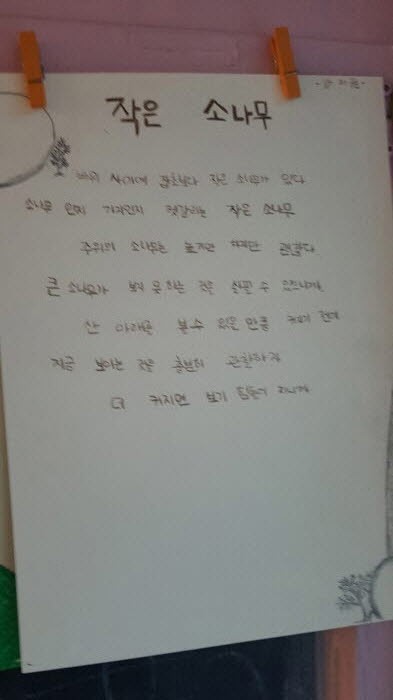 작은 소나무
바위 사이에 작은 소나무가 있다
소나무 인지 가지인지 헷갈리는 작은 소나무
주위의 소나무는 높지만 하지만 괜찮다
큰 소나무가 보지 못하는 것을 살필 수 있으니까
산 아래를 볼수 있을 만큼 커지기 전에
지금 보이는 것을 충분히 관찰하자
더 커지면 보기 힘들어 지니까